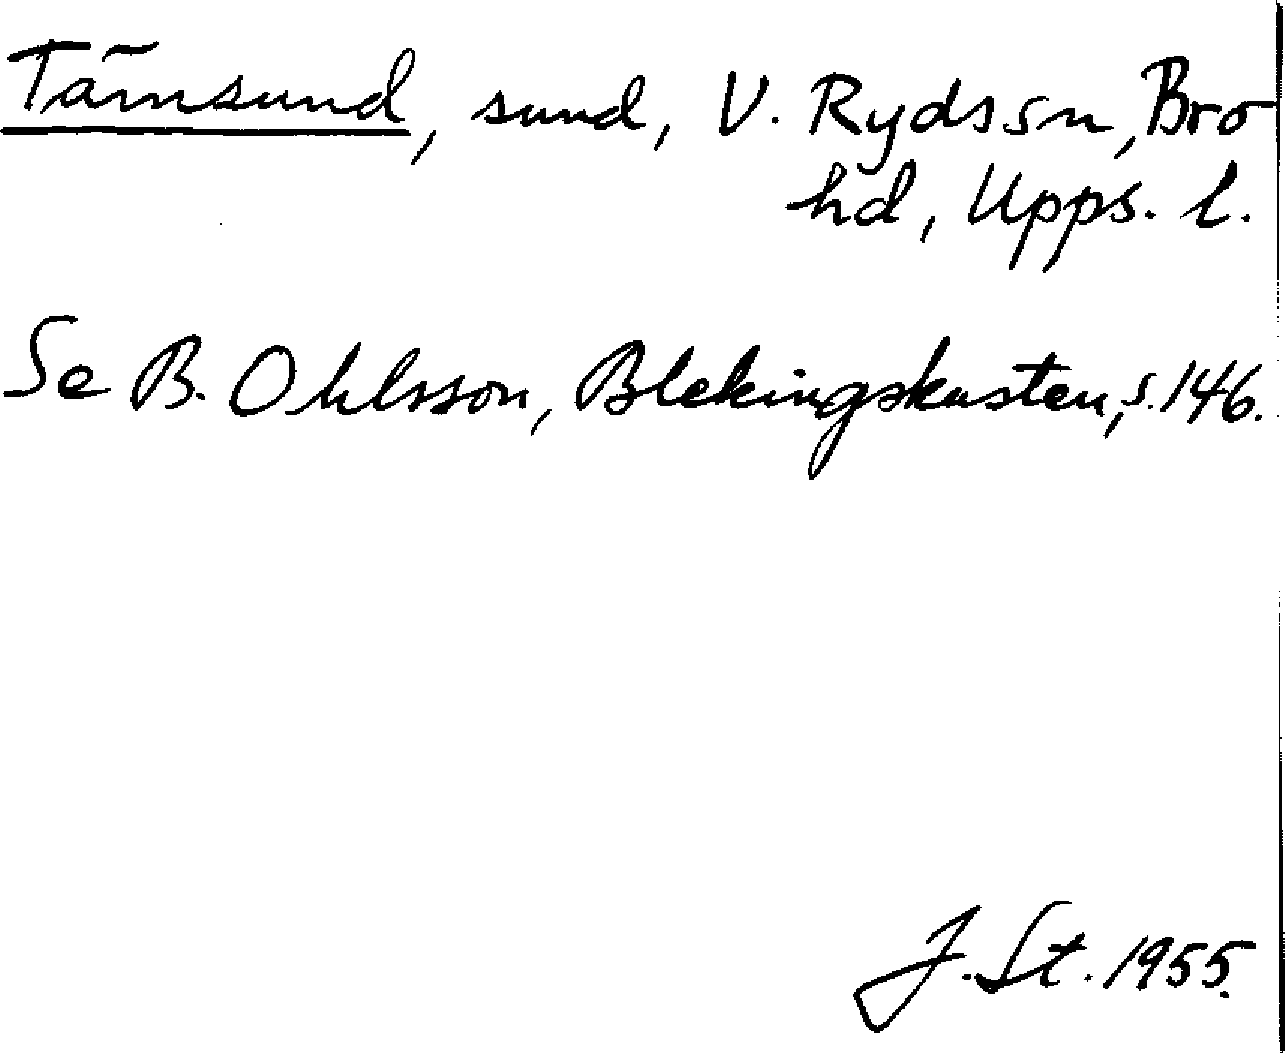 Tämsund, sund, V. Ryds sn, Bro
hd, Upps. l.
Se B. Ohlsson, Blekingskusten, s. 146.
J. St. 1955.